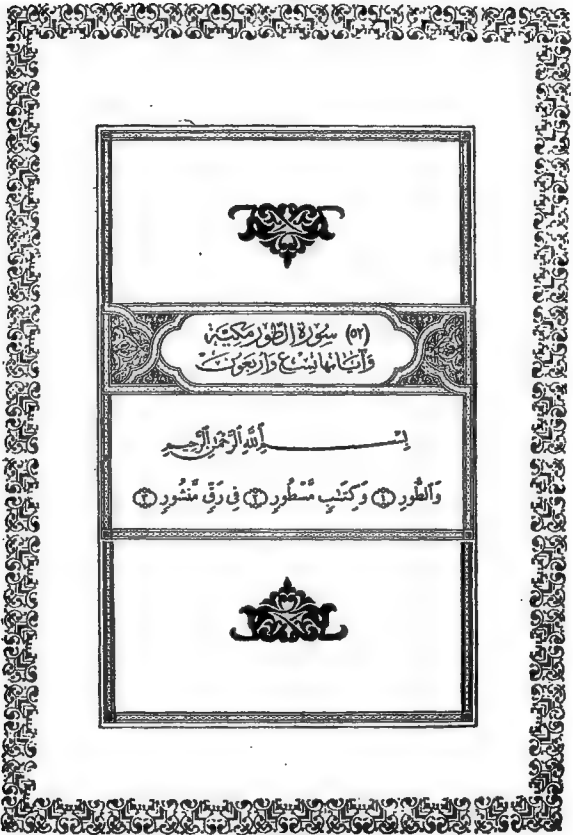 (٥٢) سُورَةُ الطُّورِ مَكِيَّةٌ
وَآيَاتُهَا تِسْعٌ وَأَرْبَعُونَ
بِسْمِ ٱللَّهِ ٱلرَّحْمَٰنِ ٱلرَّحِيمِ
وَٱلطُّورِ ١ وَكِتَٰبٍ مَّسْطُورٍ ٢ فِى رَقٍّ مَّنشُورٍ ٣